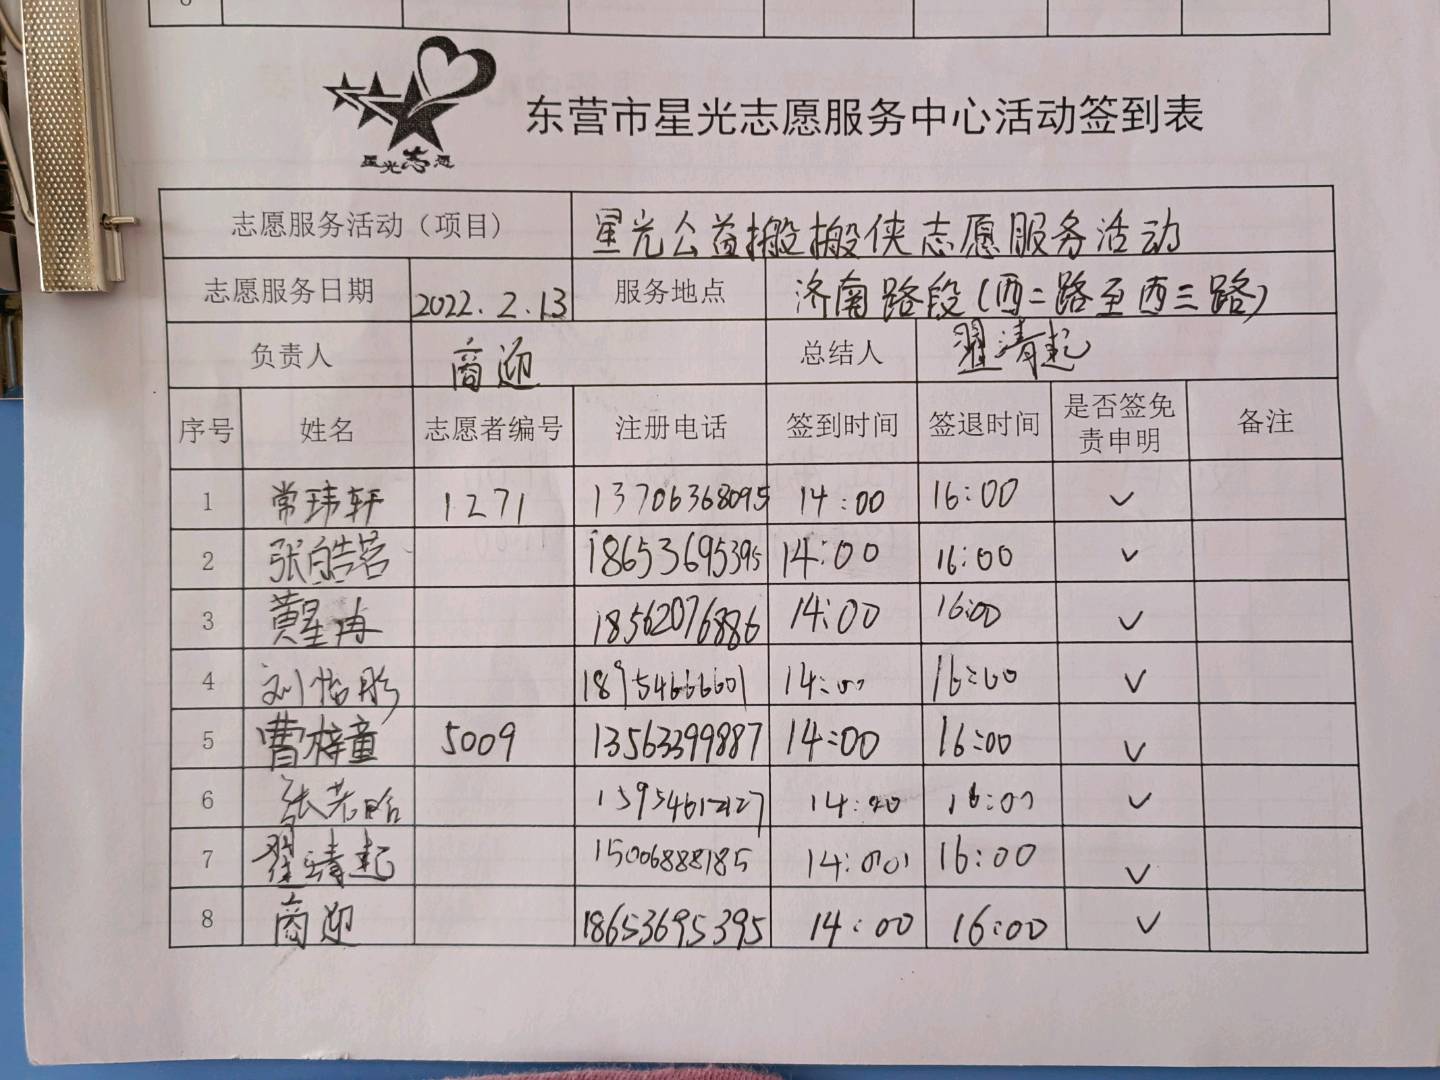 8
星光志愿
东营市星光志愿服务中心活动签到表
志愿服务活动（项目） 星光公益搬搬侠志愿服务活动
志愿服务日期 2022.2.13 服务地点 济南路段(西二路至西三路)
负责人 商迎 总结人 翟清起
序号 姓名 志愿者编号 注册电话 签到时间 签退时间 是否签免责申明 备注
1 常玮轩 1271 13706368095 14:00 16:00 ✓
2 张皓茗 18653695395 14:00 16:00 ✓
3 黄星冉 18562076886 14:00 16:00 ✓
4 刘怡彤 18954666601 14:00 16:00 ✓
5 曹梓童 5009 13563399887 14:00 16:00 ✓
6 张若晗 15954612127 14:00 16:00 ✓
7 翟清起 15006888185 14:00 16:00 ✓
8 商迎 18653695395 14:00 16:00 ✓